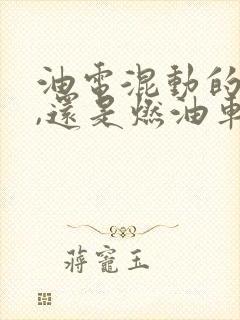 油電混動的
,還是燃油車
蔣寵玉